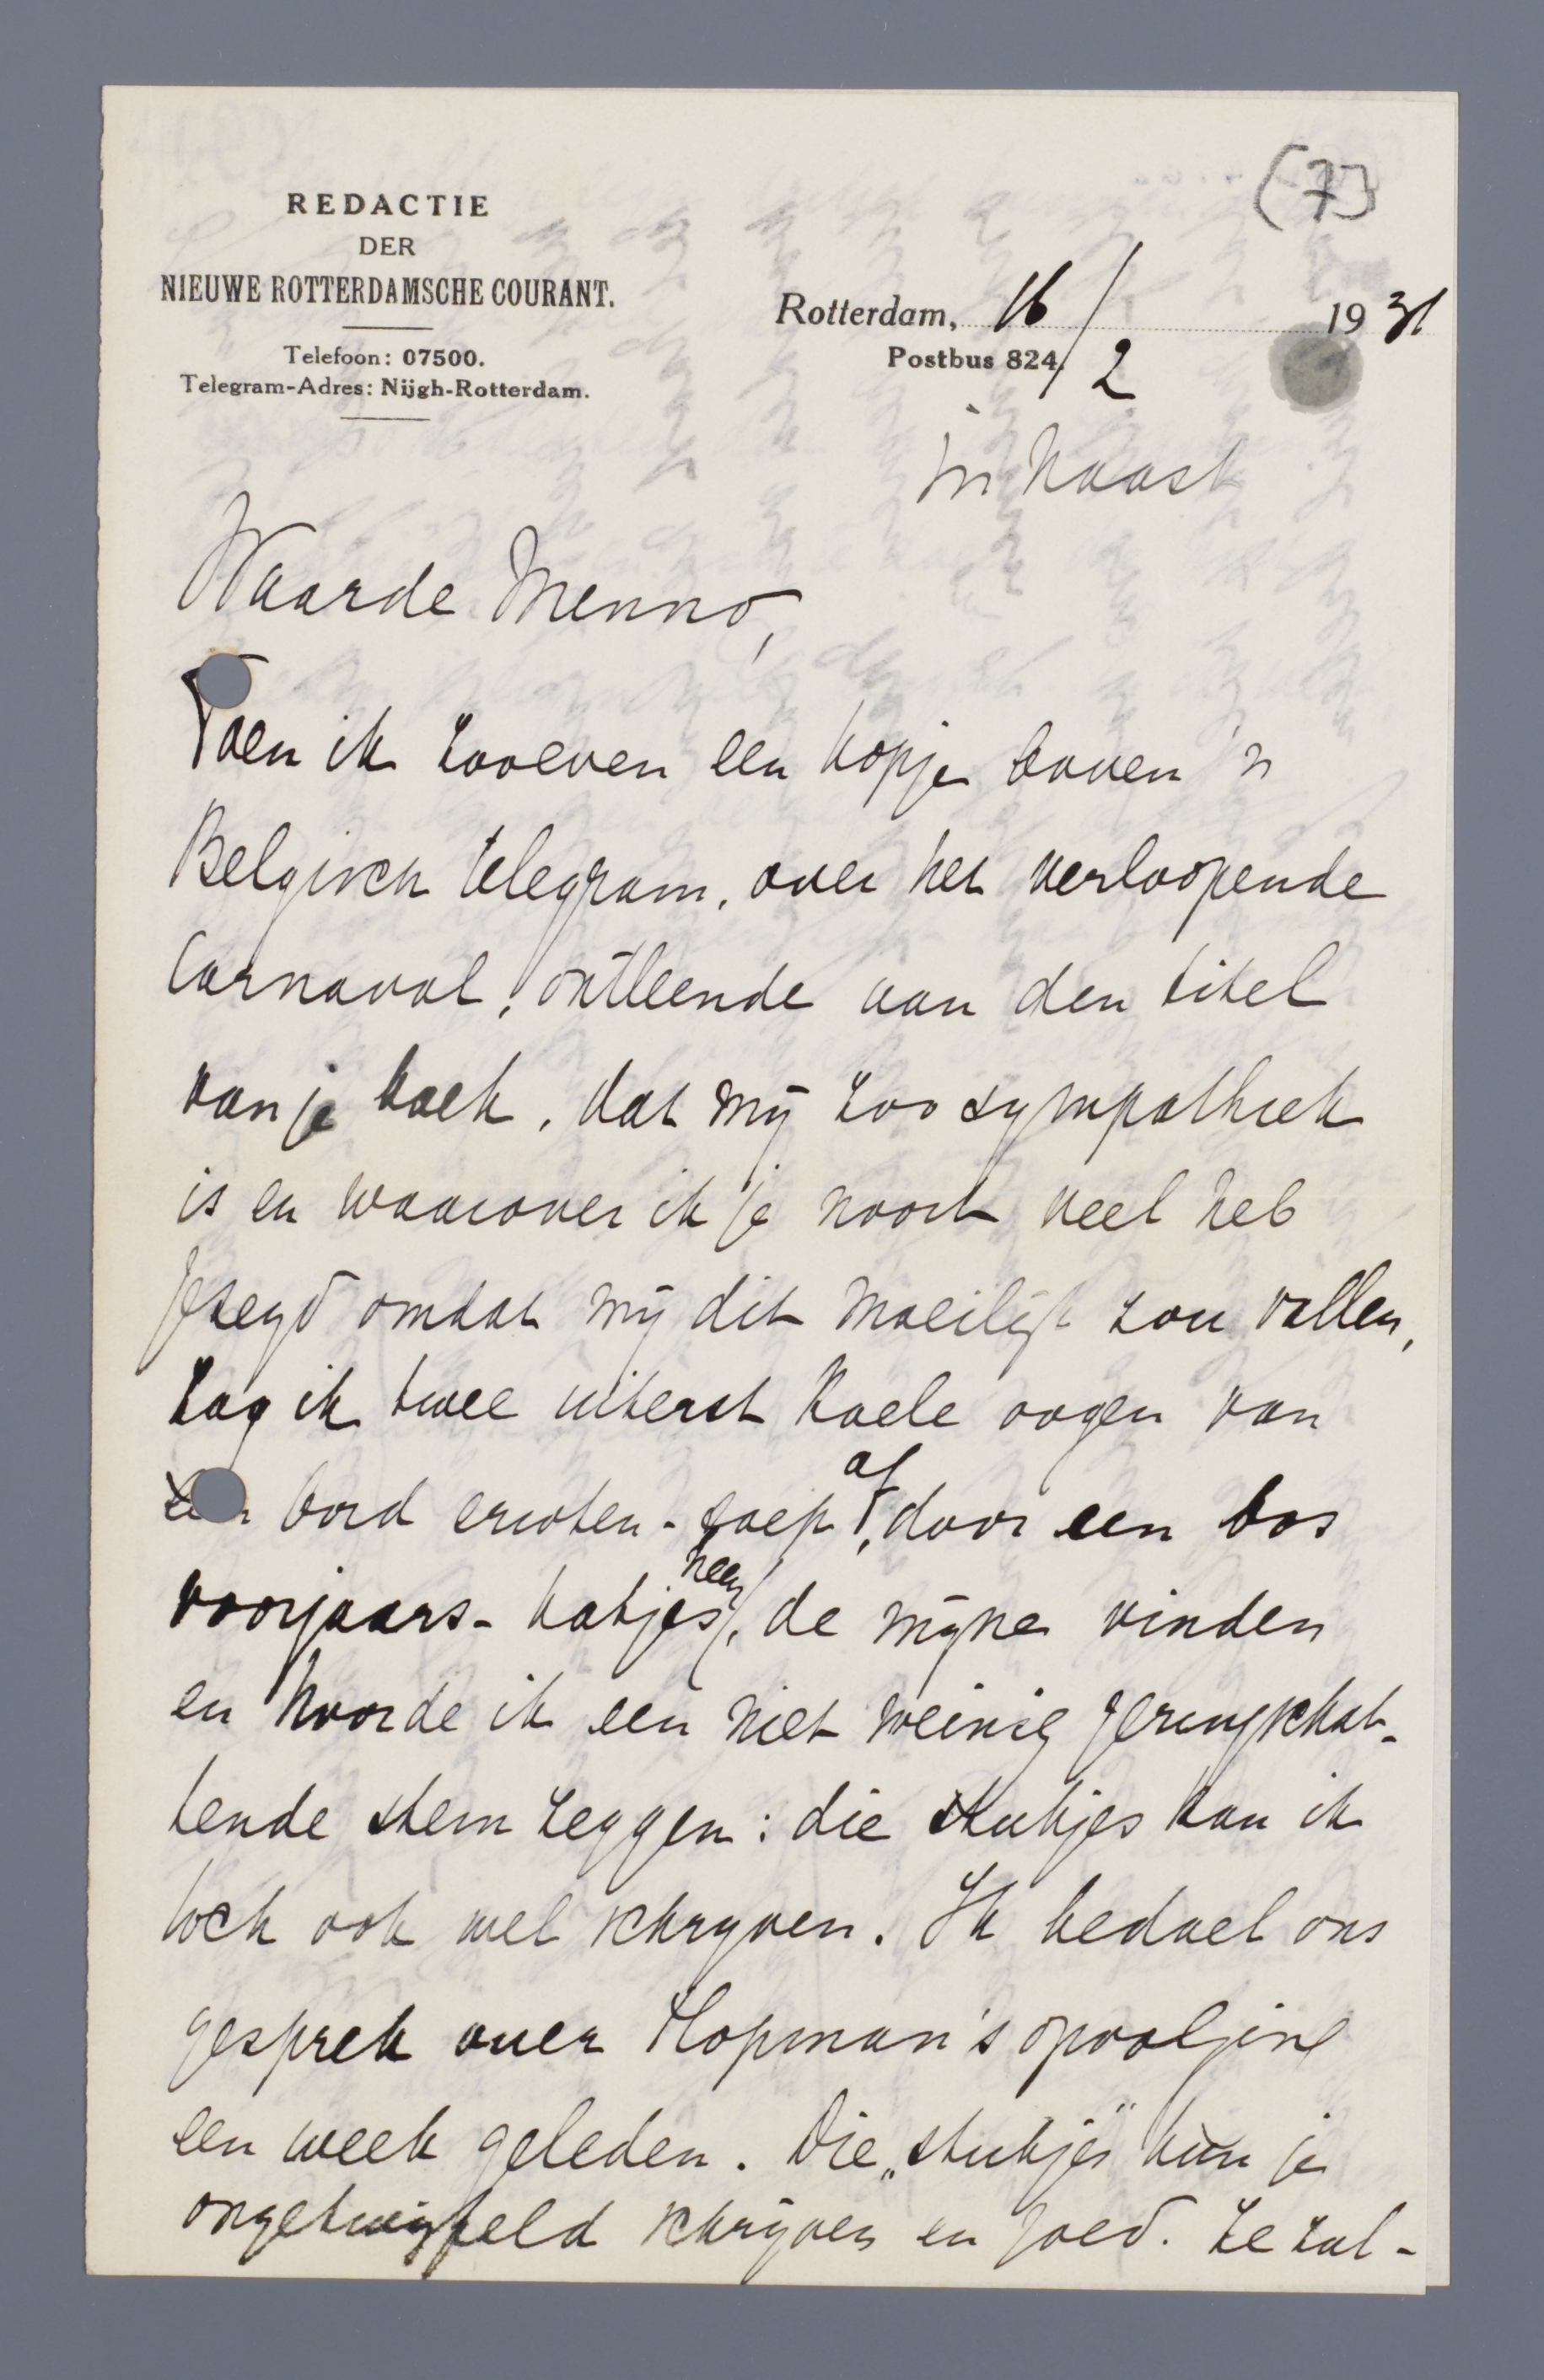 (7)
REDACTIE
DER
NIEUWE ROTTERDAMSCHE COURANT.
Telefoon: 07500.
Telegram-Adres: Nijgh-Rotterdam.
Rotterdam, 16/2 1931
Postbus 824.
in haast
Waarde Menno,
Toen ik zooeven een kopje boven 'n
Belgisch telegram, over het verloopende
Carnaval, ontleende aan den titel
van je boek, dat mij zoo sympathiek
is en waarover ik je nooit veel heb
gezegd omdat mij dit moeilijk zou vallen,
zag ik twee uiterst koele oogen van
een bord erwten-soep af, door een bos
voorjaars-katjes heen, de mijne vinden
en hoorde ik een niet weinig geringschat-
tende stem zeggen: die stukjes kan ik
toch ook wel schrijven. Ik bedoel ons
gesprek over Hopman's
een week geleden. Die „stukjes" kùn je
ongetwijfeld schrijven en goed. Ze zul-